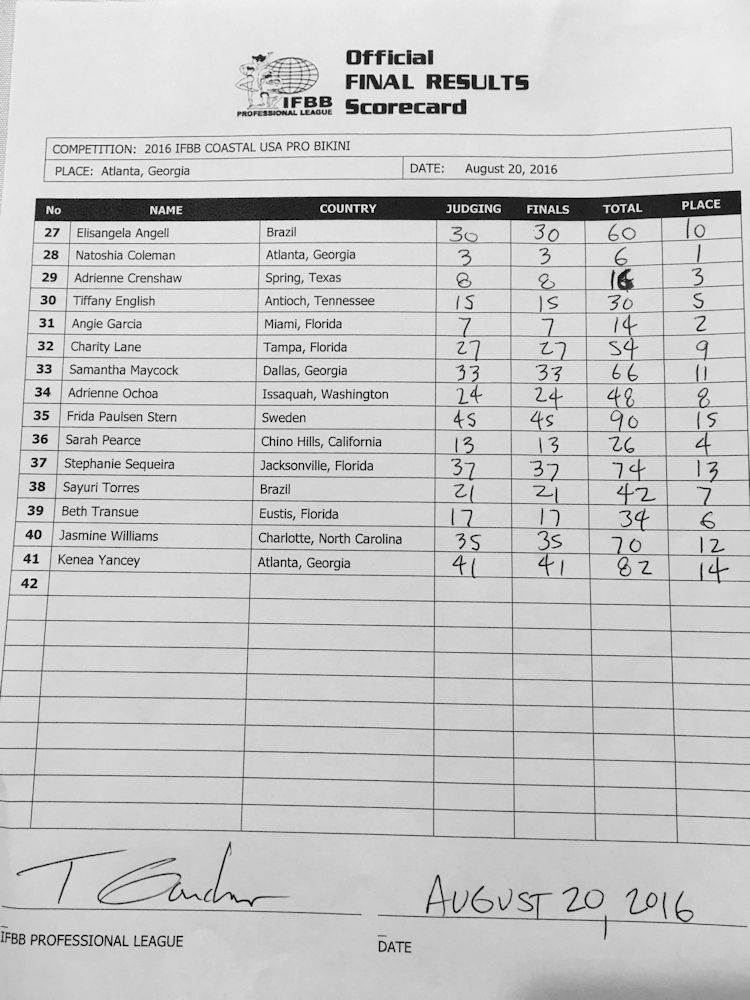 Official
FINAL RESULTS
Scorecard
IFBB
PROFESSIONAL LEAGUE
COMPETITION: 2016 IFBB COASTAL USA PRO BIKINI
PLACE: Atlanta, Georgia DATE: August 20, 2016
No NAME COUNTRY JUDGING FINALS TOTAL PLACE
27 Elisangela Angell Brazil 30 30 60 10
28 Natoshia Coleman Atlanta, Georgia 3 3 6 1
29 Adrienne Crenshaw Spring, Texas 8 8 16 3
30 Tiffany English Antioch, Tennessee 15 15 30 5
31 Angie Garcia Miami, Florida 7 7 14 2
32 Charity Lane Tampa, Florida 27 27 54 9
33 Samantha Maycock Dallas, Georgia 33 33 66 11
34 Adrienne Ochoa Issaquah, Washington 24 24 48 8
35 Frida Paulsen Stern Sweden 45 45 90 15
36 Sarah Pearce Chino Hills, California 13 13 26 4
37 Stephanie Sequeira Jacksonville, Florida 37 37 74 13
38 Sayuri Torres Brazil 21 21 42 7
39 Beth Transue Eustis, Florida 17 17 34 6
40 Jasmine Williams Charlotte, North Carolina 35 35 70 12
41 Kenea Yancey Atlanta, Georgia 41 41 82 14
42
AUGUST 20, 2016
IFBB PROFESSIONAL LEAGUE DATE